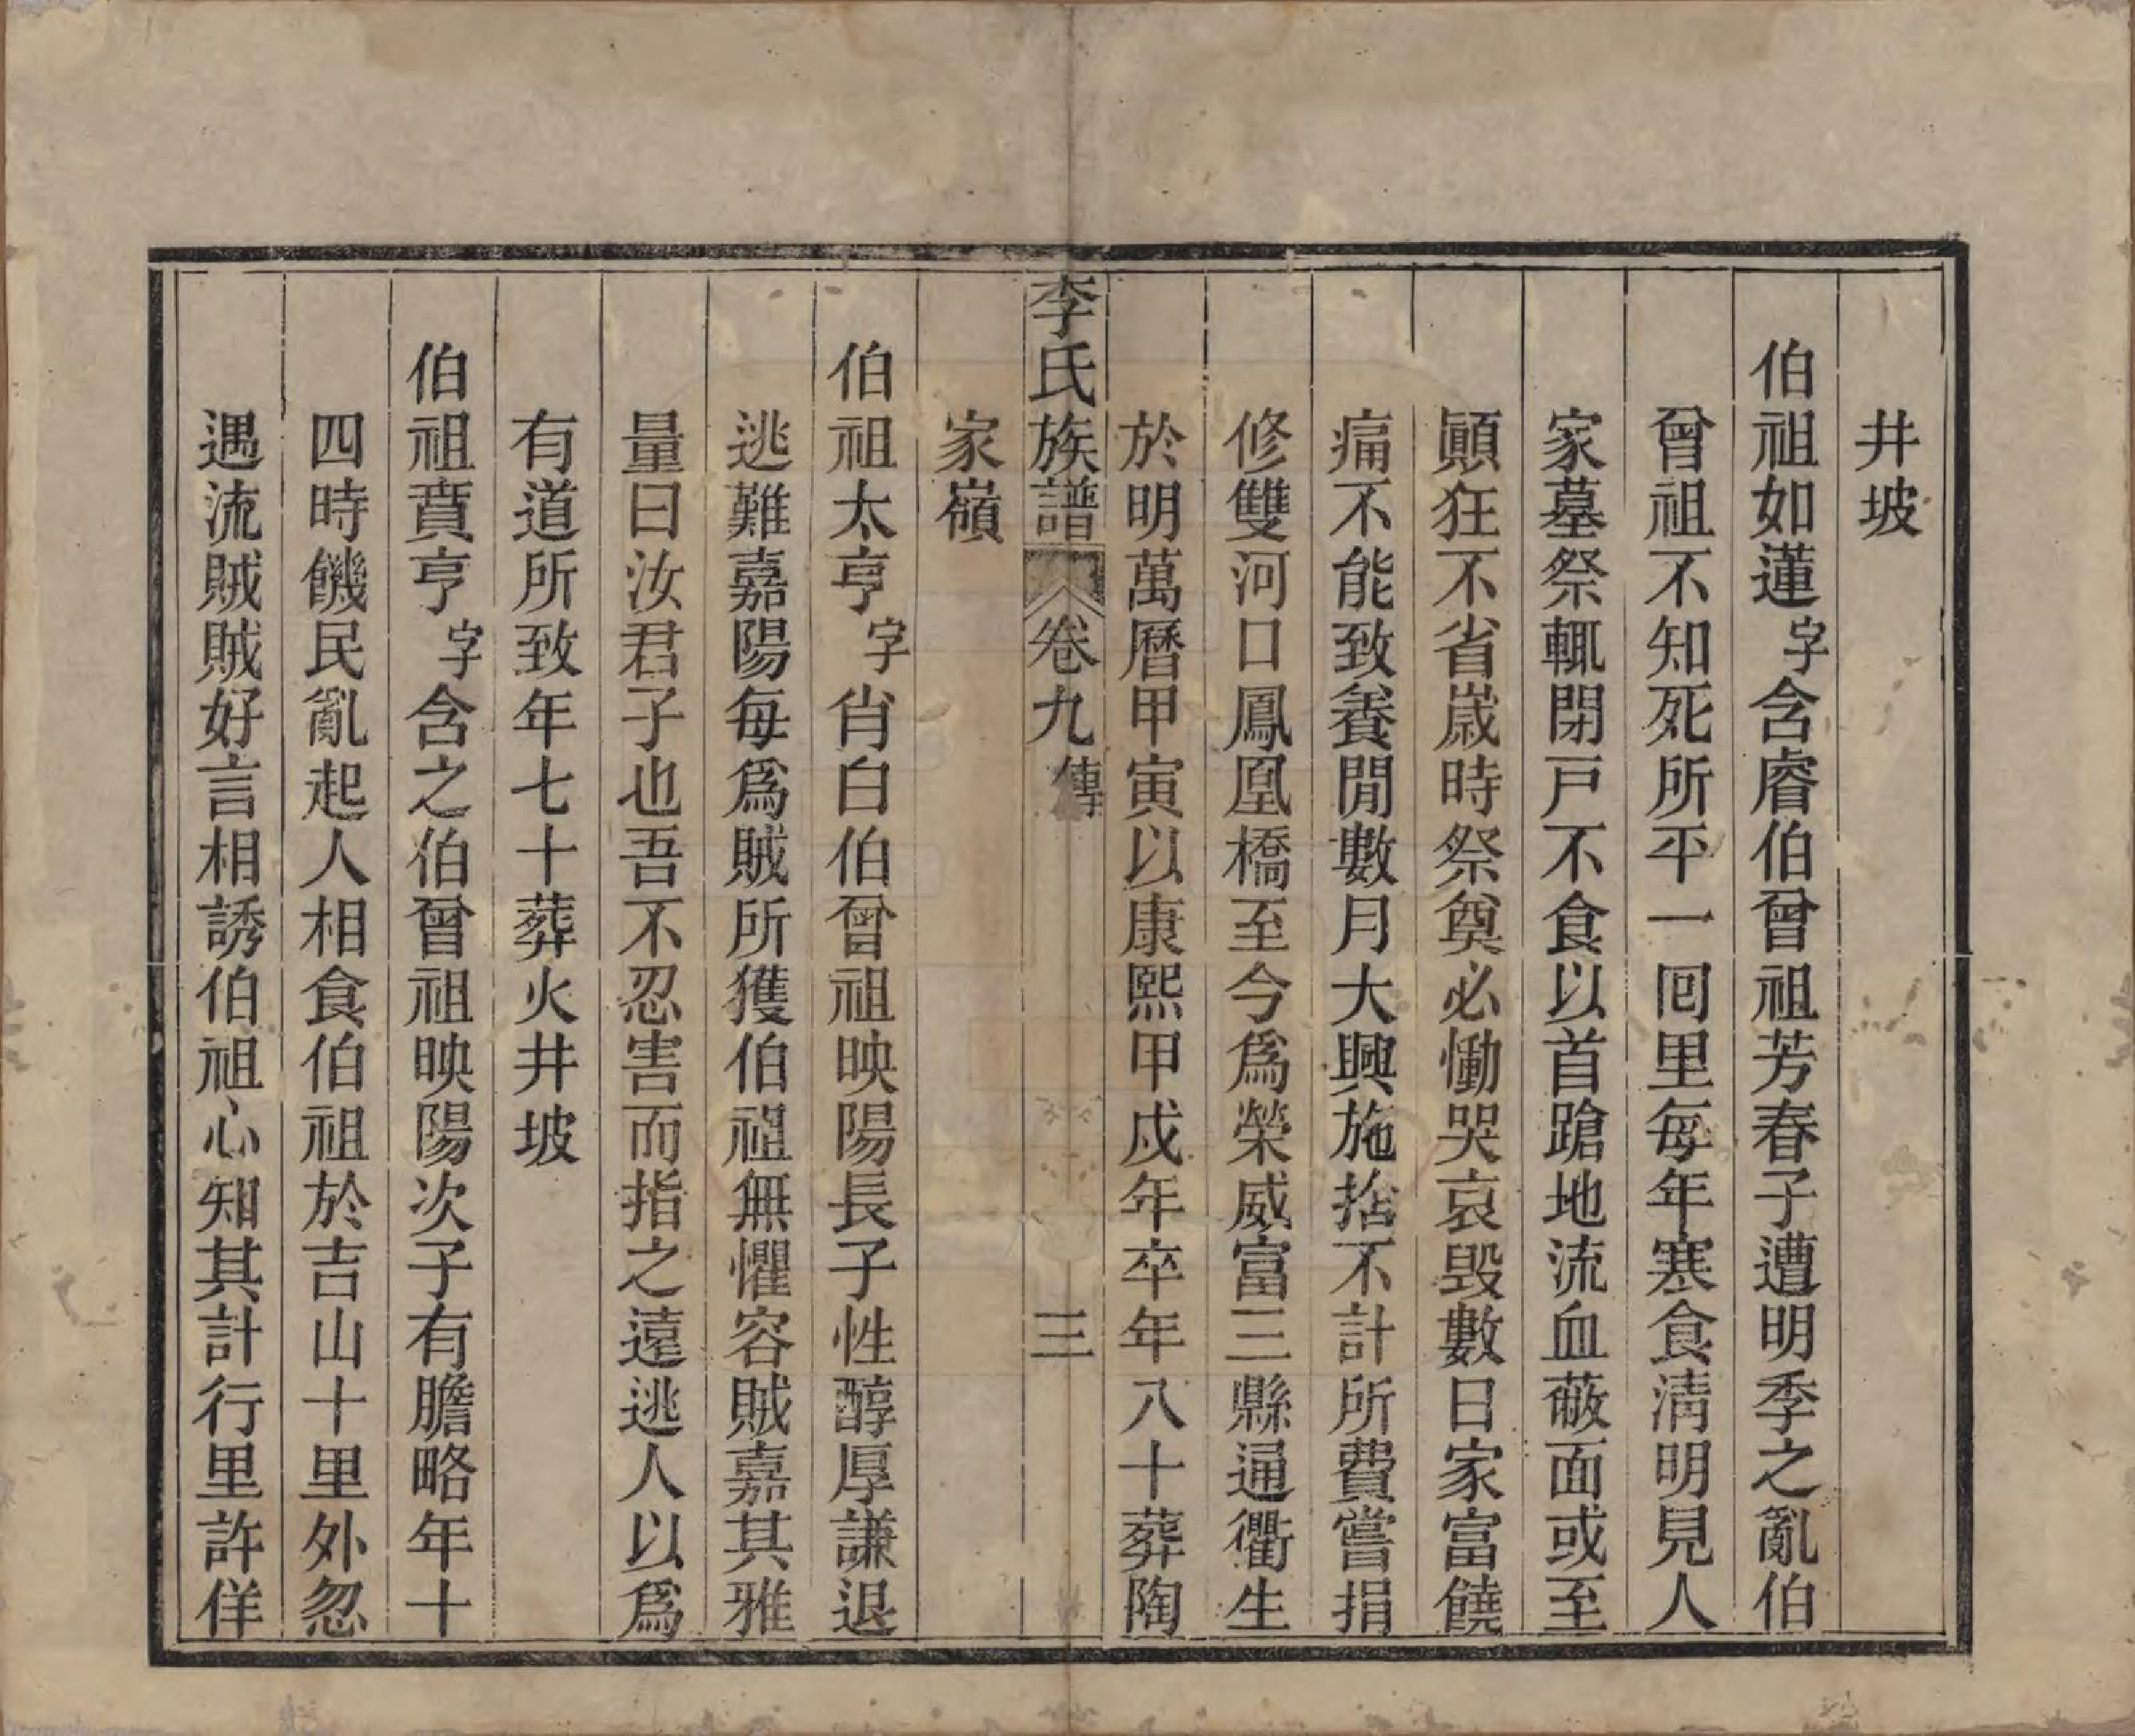 井坡
伯祖如蓮字含睿伯曾祖芳春子遭明季之亂伯
曾祖不知死所平一囘里每年寒食淸明見人
家墓祭輒閉戸不食以首蹌地流血蔽面或至
顚狂不省嵗時祭奠必慟哭哀毁數日家富饒
痛不能致養閒數月大興施捨不計所費嘗捐
修雙河口鳳凰橋至今爲榮威富三縣通衢生
於明萬曆甲寅以康熙甲戍年卒年八十葬陶
家嶺
李氏族譜 卷九傳 三
伯祖太亨字肖白伯曾祖映陽長子性醇厚謙退
逃難嘉陽每爲賊所獲伯祖無懼容賊嘉其雅
量曰汝君子也吾不忍害而指之遠逃人以爲
有道所致年七十葬火井坡
伯祖賁亨字含之伯曾祖映陽次子有膽略年十
四時饑民亂起人相食伯祖於吉山十里外忽
遇流賊賊好言相誘伯祖心知其計行里許佯